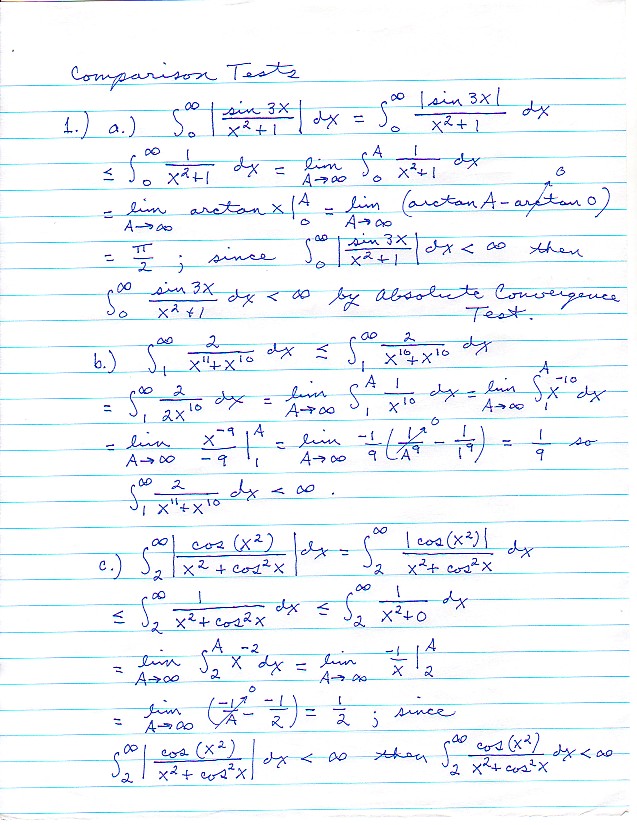 Comparison Tests
1.) a.) ∫₀^∞ |sin 3x / x²+1| dx = ∫₀^∞ |sin 3x| / x²+1 dx
≤ ∫₀^∞ 1/x²+1 dx = lim A→∞ ∫₀^A 1/x²+1 dx
= lim A→∞ arctan x |₀^A = lim A→∞ (arctan A - arctan 0) 0
= π/2 ; since ∫₀^∞ |sin 3x / x²+1| dx < ∞ then
∫₀^∞ sin 3x / x²+1 dx < ∞ by Absolute Convergence
Test.
b.) ∫₁^∞ 2 / x¹¹+x¹⁰ dx ≤ ∫₁^∞ 2 / x¹⁰+x¹⁰ dx
= ∫₁^∞ 2 / 2x¹⁰ dx = lim A→∞ ∫₁^A 1/x¹⁰ dx = lim A→∞ ∫₁^A x⁻¹⁰ dx
= lim A→∞ x⁻⁹/-9 |₁^A = lim A→∞ -1/9 (1/A⁹ 0 - 1/1⁹) = 1/9 so
∫₁^∞ 2 / x¹¹+x¹⁰ dx < ∞ .
c.) ∫₂^∞ |cos (x²) / x² + cos²x| dx = ∫₂^∞ |cos(x²)| / x²+ cos²x dx
≤ ∫₂^∞ 1 / x²+cos²x dx ≤ ∫₂^∞ 1 / x²+0 dx
= lim A→∞ ∫₂^A x⁻² dx = lim A→∞ -1/x |₂^A
= lim A→∞ (-1/A 0 - -1/2) = 1/2 ; since
∫₂^∞ |cos (x²) / x² + cos²x| dx < ∞ then ∫₂^∞ cos (x²) / x²+cos²x dx < ∞